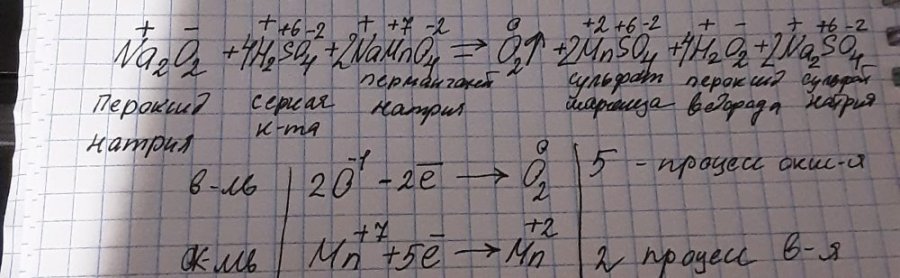 + − + +6 -2 + +7 -2 0 +2 +6 -2 + − + +6 -2
Na₂O₂ + 4H₂SO₄ + 2NaMnO₄ = O₂↑ + 2MnSO₄ + 4H₂O₂ + 2Na₂SO₄
Пероксид натрия
серная к-та
перманганат натрия
сульфат марганца
пероксид водорода
сульфат натрия
в-ль | 2O⁻¹ − 2e̅ → O₂⁰ | 5 - процесс окис-я
ок-ль | Mn⁺⁷ + 5e̅ → Mn⁺² | 2 процесс в-я